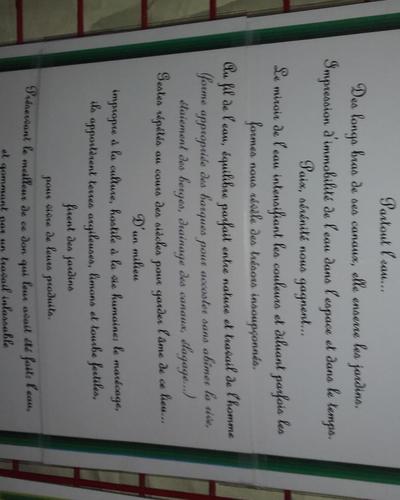 Partout l'eau...
Des longs bras de ses canaux, elle enserre les jardins.
Impression d'immobilité de l'eau dans l'espace et dans le temps.
Paix, sérénité nous gagnent...
Le miroir de l'eau intensifiant les couleurs et diluant parfois les
formes nous révèle des trésors insoupçonnés.
Au fil de l'eau, équilibre parfait entre nature et travail de l'homme
(forme appropriée des barques pour accoster sans abîmer la rive,
étaiement des berges, drainage des canaux, élagage...)
Gestes répétés au cours des siècles pour garder l'âme de ce lieu...
D'un milieu
impropre à la culture, hostile à la vie humaine: le marécage,
ils apportèrent terres argileuses, limons et tourbe fertiles,
firent des jardins
pour vivre de leurs produits.
Préservant le meilleur de ce don qui leur avait été fait: l'eau,
et gommant par un travail inlassable